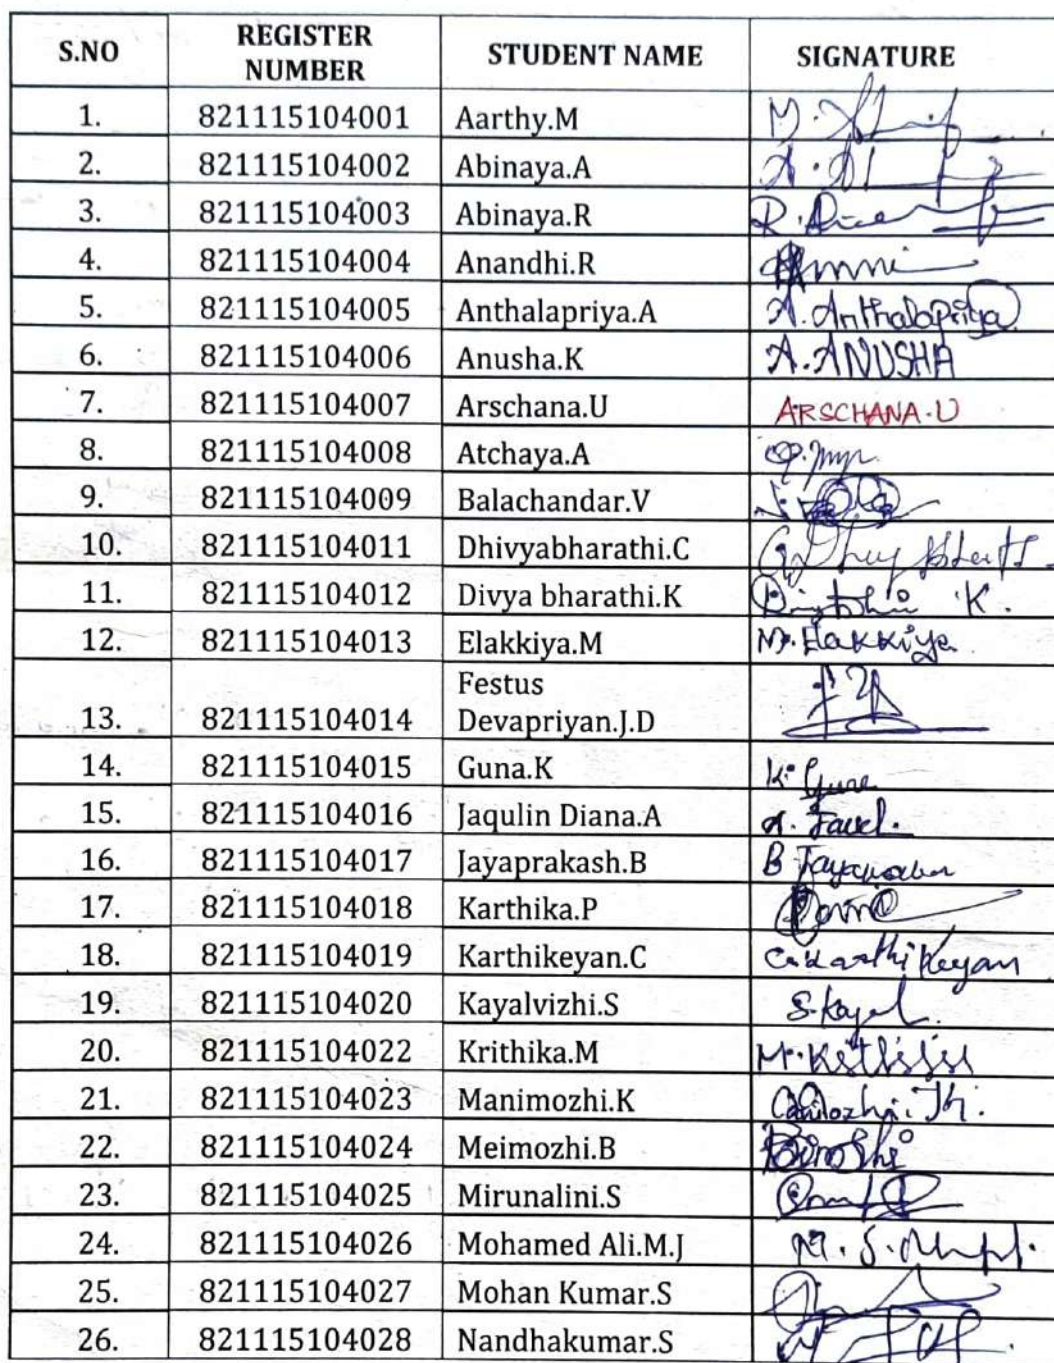 S.NO REGISTER NUMBER STUDENT NAME SIGNATURE
1. 821115104001 Aarthy.M
2. 821115104002 Abinaya.A
3. 821115104003 Abinaya.R
4. 821115104004 Anandhi.R
5. 821115104005 Anthalapriya.A A. Anthalapriya
6. 821115104006 Anusha.K A. ANUSHA
7. 821115104007 Arschana.U ARSCHANA.U
8. 821115104008 Atchaya.A
9. 821115104009 Balachandar.V
10. 821115104011 Dhivyabharathi.C
11. 821115104012 Divya bharathi.K
12. 821115104013 Elakkiya.M M. Elakkiya
13. 821115104014 Festus Devapriyan.J.D
14. 821115104015 Guna.K
15. 821115104016 Jaqulin Diana.A
16. 821115104017 Jayaprakash.B
17. 821115104018 Karthika.P
18. 821115104019 Karthikeyan.C C.Karthikeyan
19. 821115104020 Kayalvizhi.S S.Kayal.
20. 821115104022 Krithika.M
21. 821115104023 Manimozhi.K
22. 821115104024 Meimozhi.B
23. 821115104025 Mirunalini.S
24. 821115104026 Mohamed Ali.M.J
25. 821115104027 Mohan Kumar.S
26. 821115104028 Nandhakumar.S